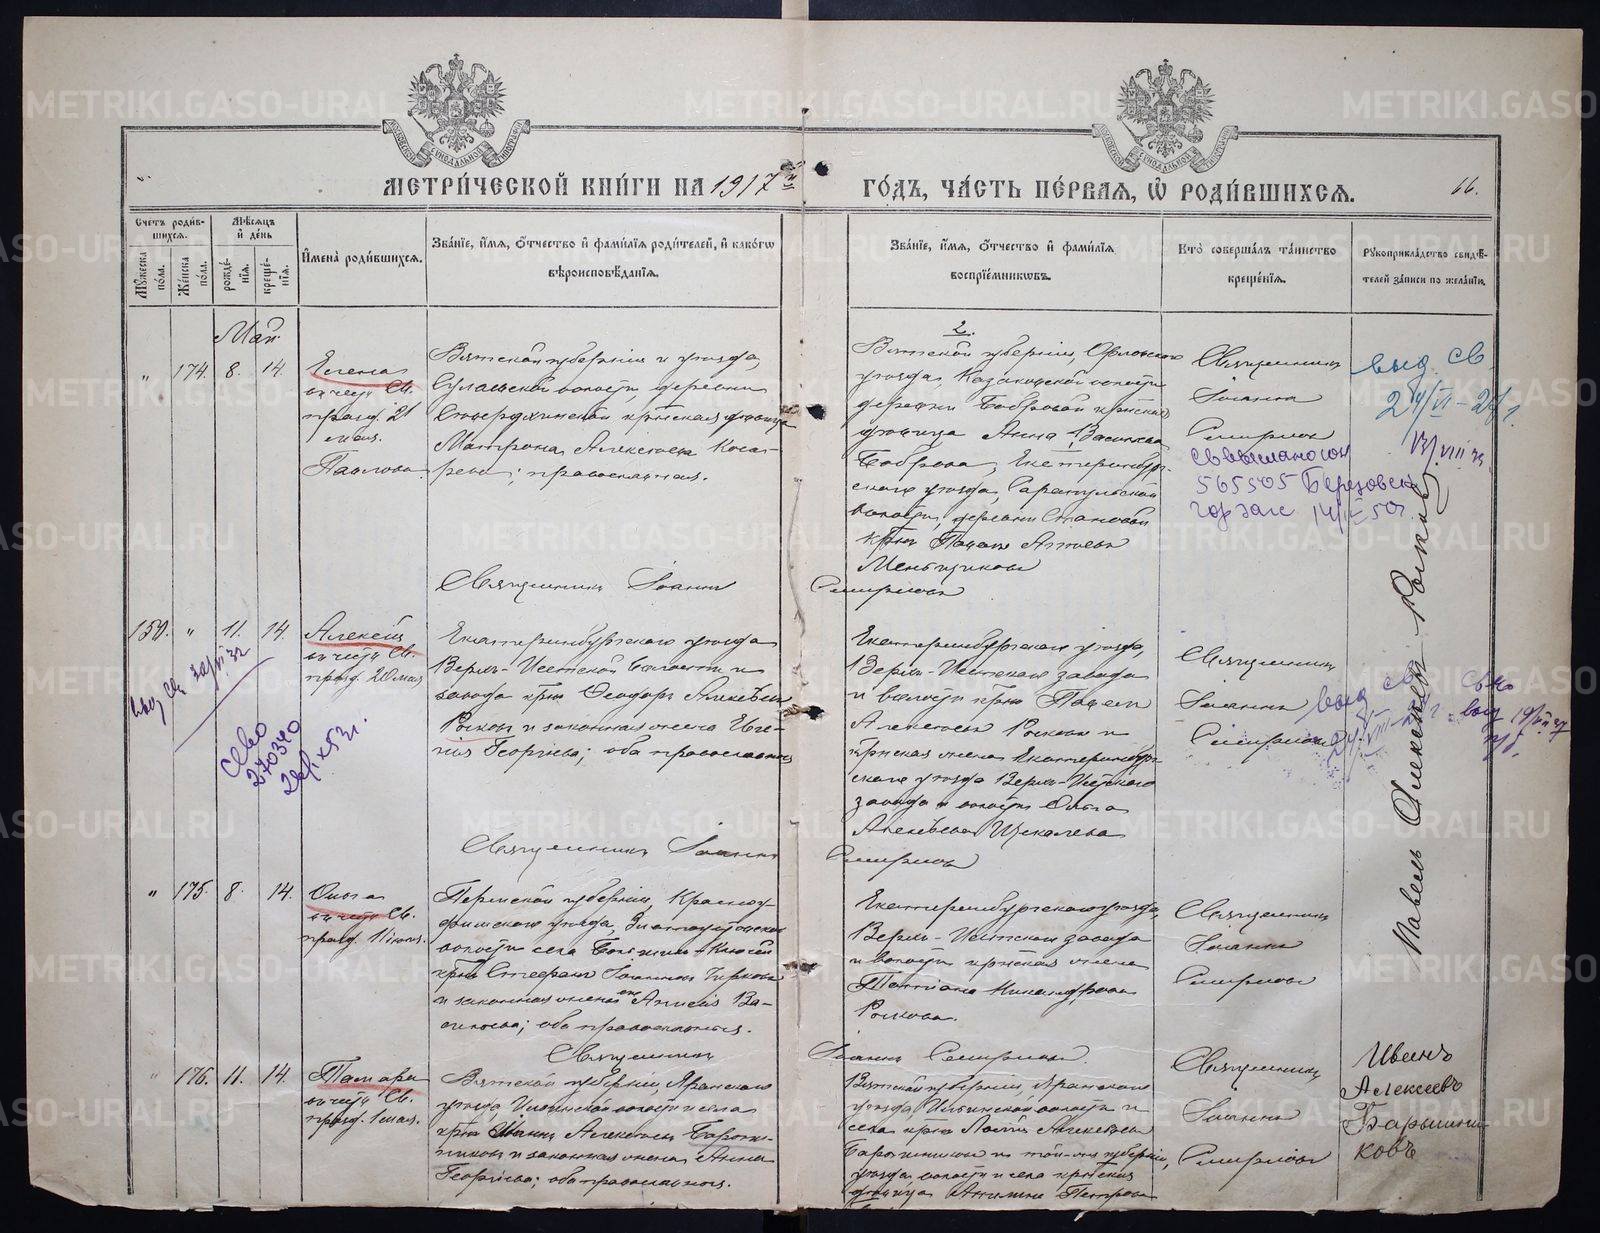 МЕТРИ́ЧЕСКОЙ КНИ́ГИ НА 1917 й
ГО́ДЪ, ЧА́СТЬ ПЕ́РВАЯ, Ѡ РОДИ́ВШИХСЯ.
66.
Счетъ роди́в-
шихся.
Мѣ́сяцъ
и де́нь
Мꙋжеска по́ла.
Же́нска по́ла.
рожде́-
нія.
креще́-
нія.
Имена̀ роди́вшихся.
Зва́ніе, и́мя, о́тчество и фами́лія роди́телей, и како́гѡ
вѣроисповѣ́данія.
Зва́ніе, и́мя, о́тчество и фами́лія
воспріе́мниковъ.
Кто̀ соверша́лъ та́инство
креще́нія.
Рꙋкоприкла́дство свидѣ́-
телей за́писи по жела́нію.
Май
" 174. 8. 14.
Елена
въ честь Св.
празд. 21
мая.
Павлова
Вятской губерніи и уѣзда,
волости, деревни
крестьянская дѣвица
Матрона Алексѣева Коса-
рева; православная.
2.
Вятской губерніи, Орловскаго
уѣзда, Казаковской волости
деревни Бобровой крстьская
дѣвица Анна Васильева
Боброва, Екатеринбург-
скаго уѣзда, Сарапульской
волости, деревни Становой
крнъ Павелъ
Меньшиковъ
Священникъ
Іоаннъ
Смирновъ
выд. св.
24/VI-26 г.
св высланосон
565505 Березовск
горзагс 14/IX 50г
Священникъ Іоаннъ Смирновъ
150. " 11. 14.
Алексѣй
въ честь Св.
празд. 20 мая
Екатеринбургскаго уѣзда
Верхъ-Исетской волости и
завода крнъ Ѳеодоръ Алексѣевъ
Рочковъ и законная жена Евге-
нія Георгіева; оба православные
Екатеринбургскаго уѣзда,
Верхъ-Исетскаго завода
и волости крнъ Павелъ
Алексѣевъ Рочковъ и
крнская жена Екатеринбург-
скаго уѣзда Верхъ-Исетскаго
завода и волости Ольга
Алексѣева Щекалева
Священникъ
Іоаннъ
Смирновъ
св-во
270340
28/IX 53г.
выд св
св-во
выд 19/VII 37
Павелъ Алексѣевъ Рочковъ
Священникъ Іоаннъ Смирновъ
" 175. 8. 14.
Ольга
въ честь Св.
празд. 11 іюля.
Пермской губерніи, Красноу-
фимскаго уѣзда, Златоустовской
волости села Большихъ-Ключей
крнъ Стефанъ Іоанновъ Чирковъ
и законная жена его Анисія Ва-
сильева; оба православные.
Екатеринбургскаго уѣзда,
Верхъ-Исетскаго завода
и волости крнская жена
Татіана Никандрова
Рочкова.
Священникъ
Іоаннъ
Смирновъ
Священникъ Іоаннъ Смирновъ.
" 176. 11. 14.
Тамара
въ честь Св.
празд. 1 мая.
Вятской губерніи, Яранскаго
уѣзда, Ильинской волости и села
крнъ Иванъ Алексѣевъ Барыш-
никовъ и законная жена Анна
Георгіева; оба православные.
Вятской губерніи, Яранскаго
уѣзда Ильинской волости и
села крнъ Алексѣевъ
Барышниковъ и той-же губерніи,
уѣзда волости и села крнская
дѣвица Петрова
Священникъ
Іоаннъ
Смирновъ
Иванъ
Алексеевъ
Барышни-
ковъ
METRIKI.GASO-URAL.RU